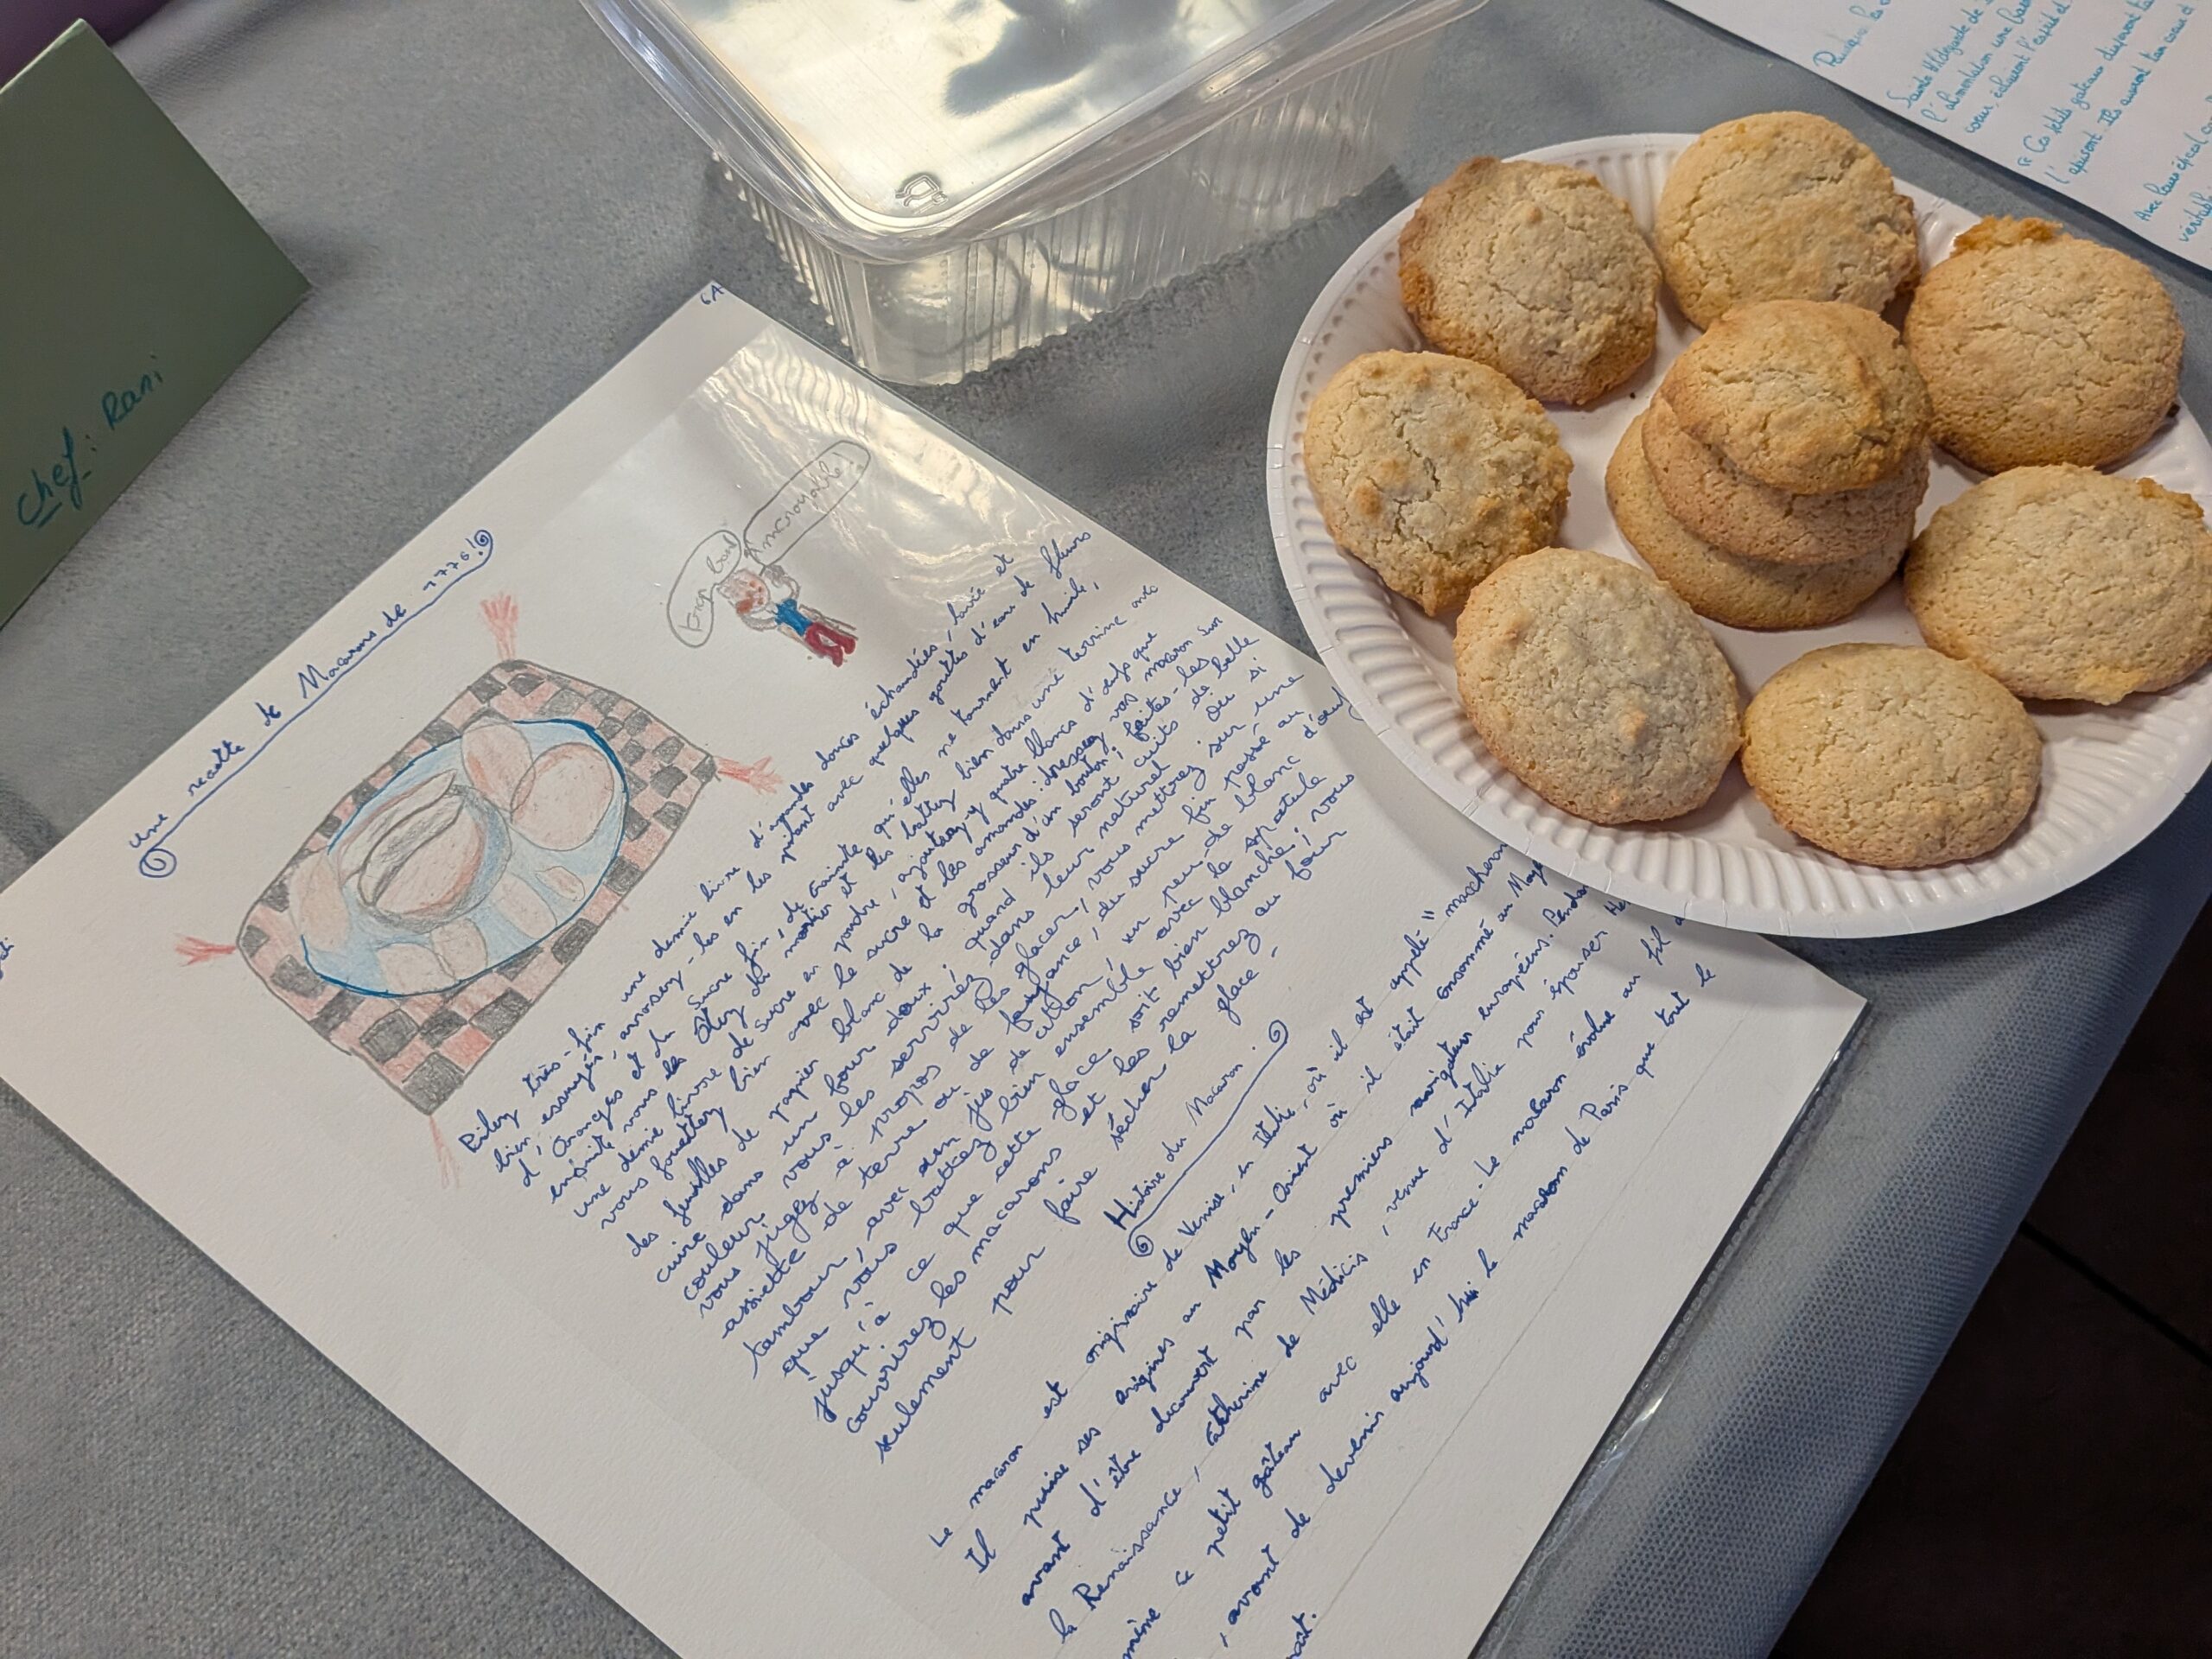 Chef: Rani
6A
Une recette de Macarons de 1776!
trop bon!
macaronable!
Pilez très-fin une demie livre d'amandes douces échaudées, lavée et
bien essuyés, arrosez-les en les pilant avec quelques gouttes d'eau de fleurs
d'Oranges et du sucre fin, de crainte qu'elles ne tournent en huile,
ensuite vous les ôtez du mortier et les battez bien dans une terrine avec
une demie livre de sucre en poudre, ajoutez-y quatre blancs d'œufs que
vous fouettez bien avec le sucre et les amandes: dressez vos macaron sur
des feuilles de papier blanc de la grosseur d'un bouton; faites-les
cuire dans un four doux, quand ils seront cuits de belle
couleur vous les servirez dans leur naturel ou si
vous jugez à propos de les glacer, vous mettrez sur une
assiette de terre ou de fayance, du sucre fin passé au
tambour, avec un jus de citron, un peu de blanc d'œuf
que vous battez bien ensemble avec la spatule
jusqu'à ce que cette glace soit bien blanche; vous
couvrirez les macarons et les remettrez au four
seulement pour faire sécher la glace.
Histoire du Macaron:
Le macaron est originaire de Venise, en Italie, où il est appelé "maccheron
Il puise ses origines au Moyen-Orient où il était consommé au Moye
avant d'être découvert par les premiers navigateur européens. Penda
la Renaissance, Catherine de Médicis, venue d'Italie pour épouser He
mène ce petit gâteau avec elle en France. Le macaron évolue au fil
, avant de devenir aujourd'hui le macaron de Paris que tout le
Sainte Hildegarde de
l'alimentation une
cœur, éclairent l'esprit et
" Ces petits gâteaux
l'apaisent. Ils ouvrent ton cœur et
Avec
véritabl